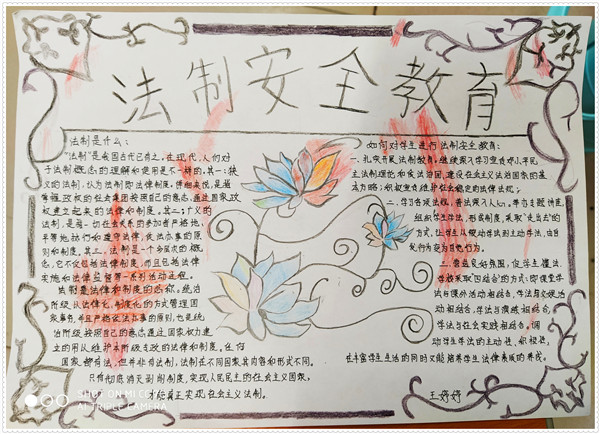 法制安全教育
法制是什么：
"法制"是我国古代已有之，在现代，人们对
于法制概念的理解和使用是不一样的，其一：狭
义的法制，认为法制即法律制度，详细来说，是指
掌握政权的社会集团按照自己的意志，通过国家政
权建立起来的法律和制度，其二：广义的
法制，是指一切社会关系的参加者严格地、
平等地执行和遵守法律，依法办事的原
则和制度。其三：法制是一个多层次的概
念，它不仅包括法律制度，而且包括法律
实施和法律监督等一系列活动过程。
法制是法律和制度的总称，统治
阶级以法律化、制度化的方式管理国
家事务，并且严格依法办事的原则，也是统
治阶级按照自己的意志通过国家权力建
立的用以维护本阶级专政的法律和制度，任何
国家都有法，但并非有法制，法制在不同国家其内容和形式不同。
只有彻底消灭剥削制度，实现人民民主的社会主义国家，
才能真正实现社会主义法制。
如何对学生进行法制安全教育：
一、扎实开展法制教育，继续深入学习宣传邓小平民
主法制理论和依法治国、建设社会主义法治国家的基
本方略；积极宣传维护社会稳定的法律法规；
二、学习各项法规，普法深入人心，举办专题讲座，
组织学生学法，形成制度，采取"走出去"的
方式，让学生从被动学法到主动学法，由自
发行为变为自觉行为。
三、营造良好氛围，促学生懂法，
学校采取"四结合"的方式：即课堂学
法与课外活动相结合，学法与文娱活
动相结合，学法与演线相结合，
学法与社会实践相结合。调
动学生学法的主动性、积极性，
在丰富学生生活的同时又能培养学生法律素质的养成。
王婷婷
SHOT ON MI CC9
AI TRIPLE CAMERA